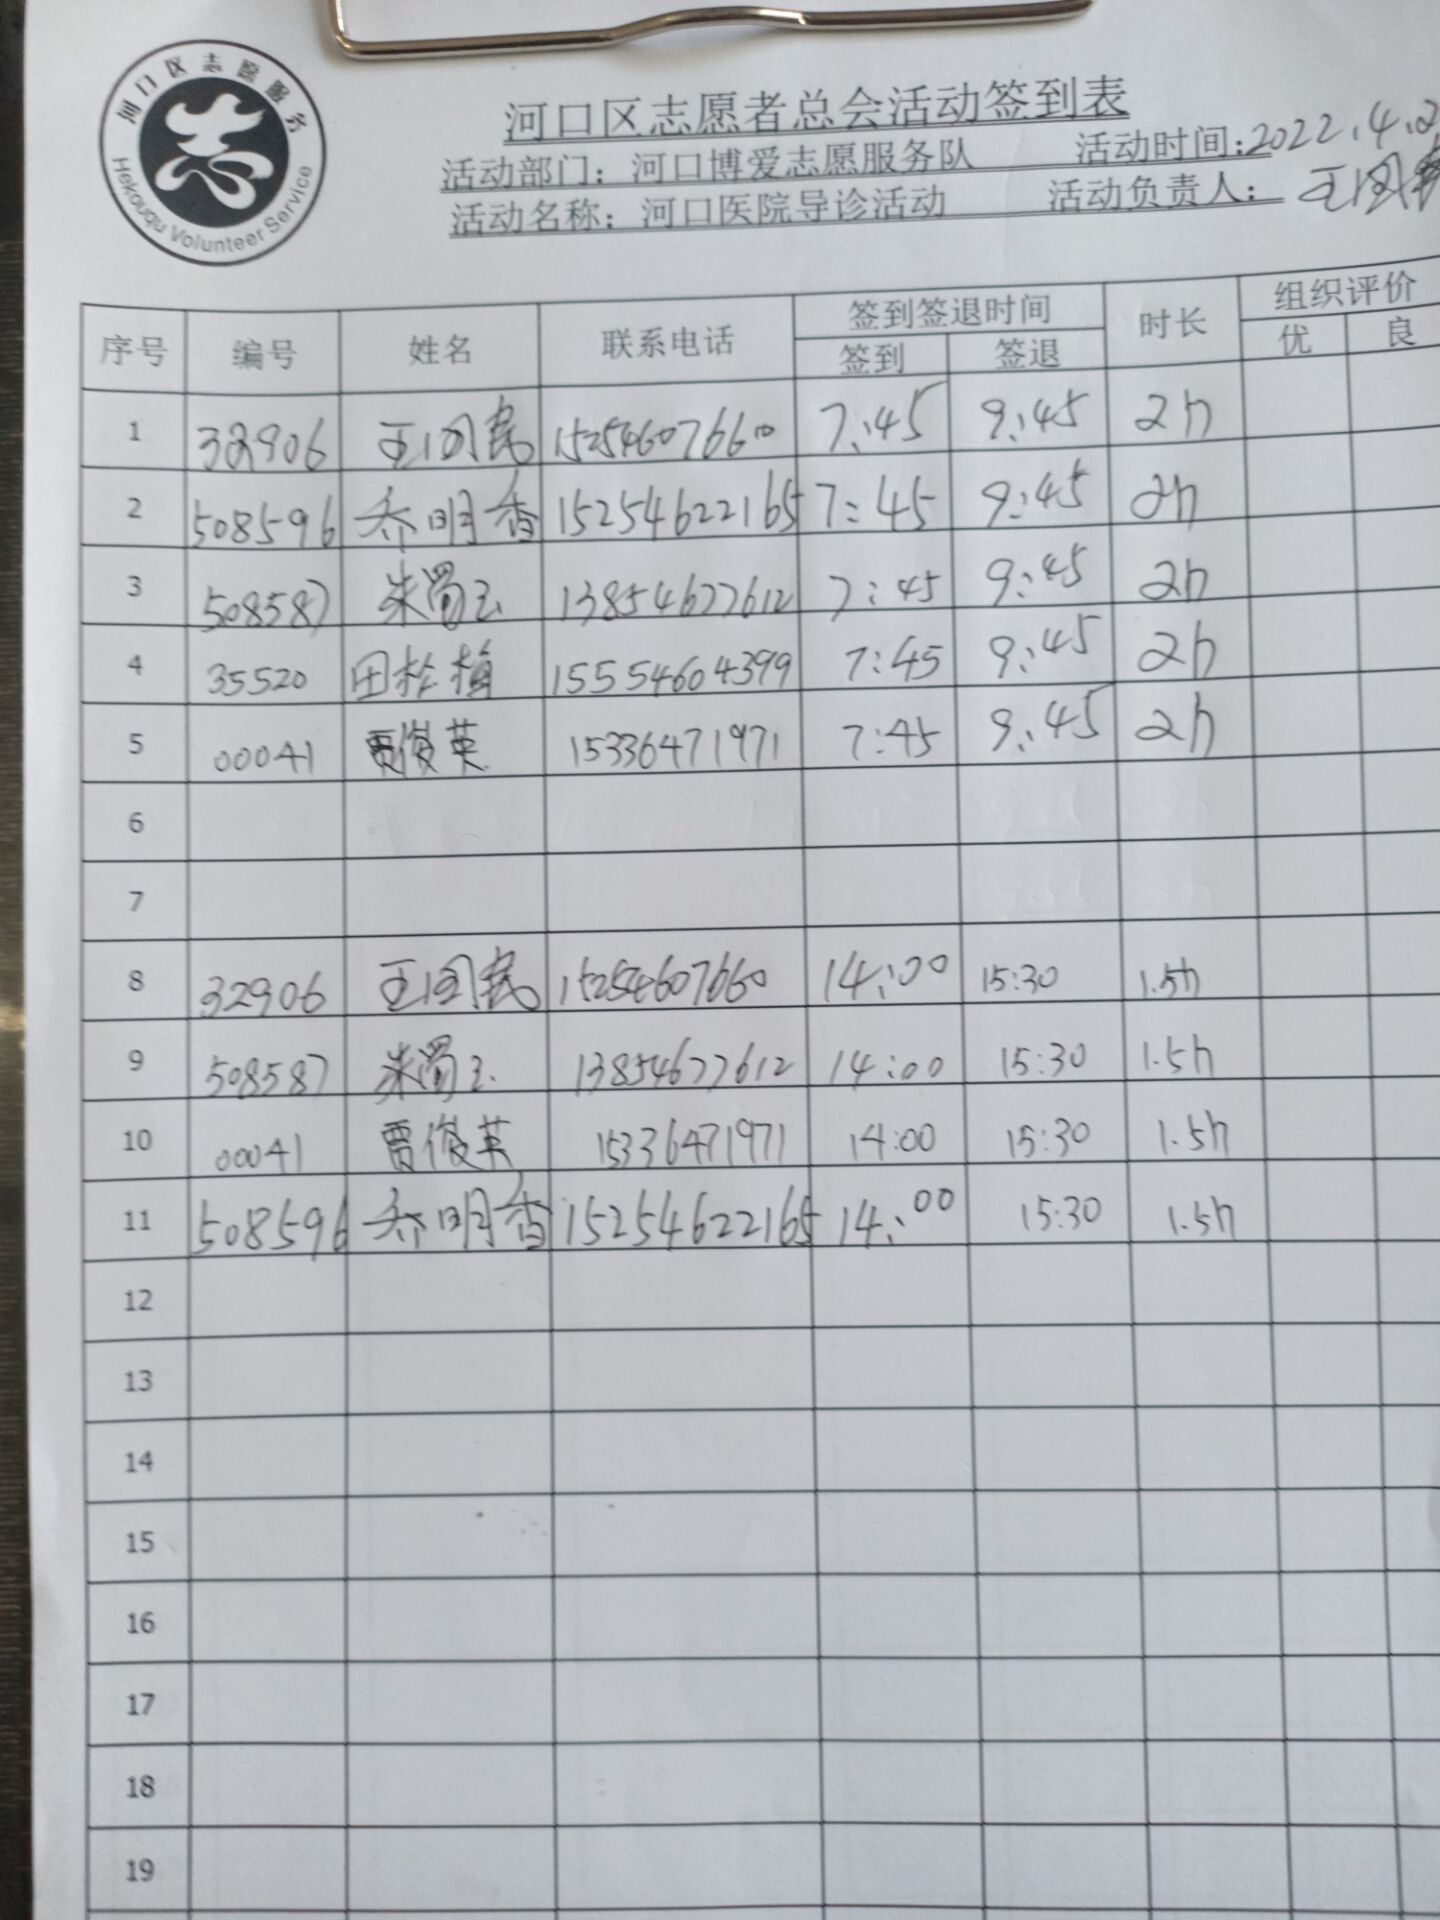 河口区志愿服务
Hekouqu Volunteer Service
河口区志愿者总会活动签到表
活动部门：河口博爱志愿服务队 活动时间:2022.4.2
活动名称：河口医院导诊活动 活动负责人：王国民
序号 编号 姓名 联系电话 签到签退时间 时长 组织评价
签到 签退 优 良
1 32906 王国民 15254607660 7:45 9:45 2h
2 508596 乔明香 15254622165 7:45 9:45 2h
3 508587 朱蜀玉 13854677612 7:45 9:45 2h
4 35520 田 15554604399 7:45 9:45 2h
5 00041 贾俊英 15336471971 7:45 9:45 2h
6
7
8 32906 王国民 15254607660 14:00 15:30 1.5h
9 508587 朱蜀玉 13854677612 14:00 15:30 1.5h
10 00041 贾俊英 15336471971 14:00 15:30 1.5h
11 508596 乔明香 15254622165 14:00 15:30 1.5h
12
13
14
15
16
17
18
19